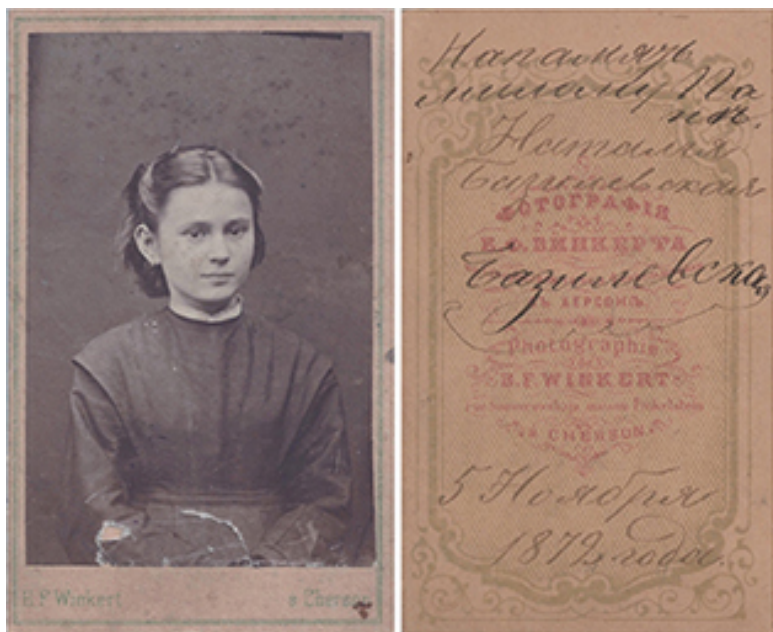 E. F Winkert
a Cherson
Напамять
милому Па
пѣ.
Наталья
Базилевская
ФОТОГРАФІЯ
Е.Ф. ВИНКЕРТА
Базилевская
ВЪ ХЕРСОНѢ
Photographie
E. F WINKERT
maison
A CHERSON
5 Ноября
1872 года.